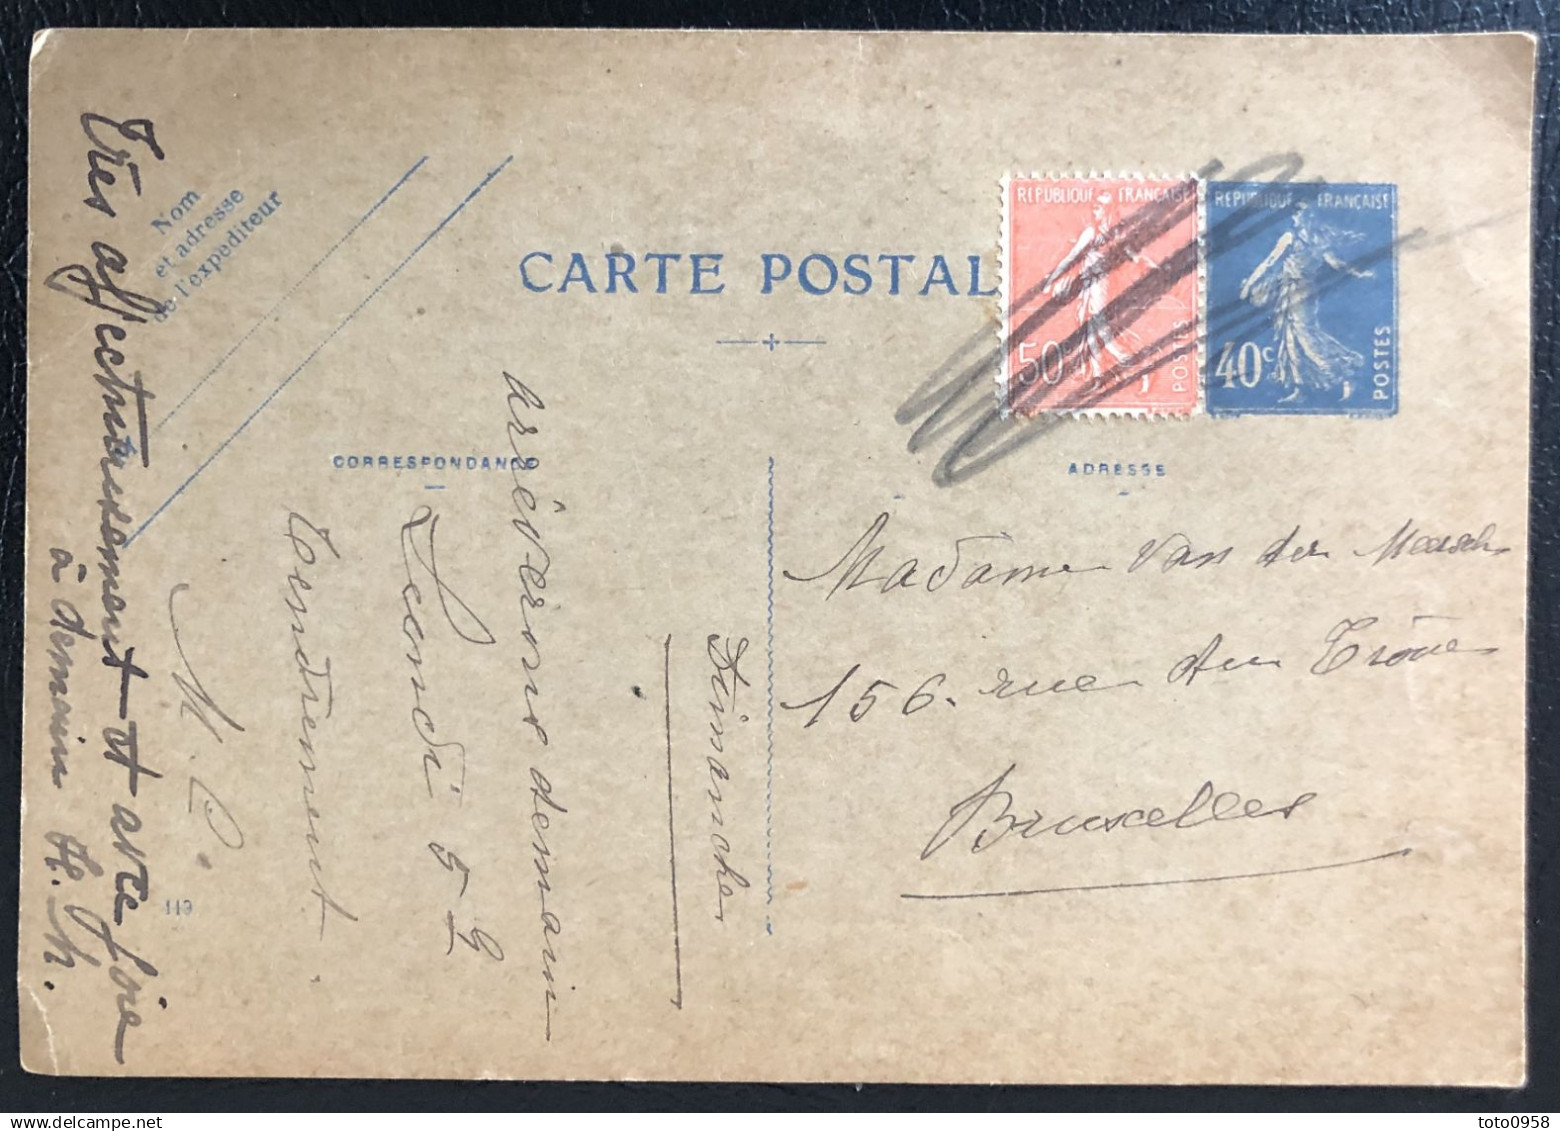 Nom
et adresse
de l'expéditeur
CARTE POSTAL
RÉPUBLIQUE FRANÇAISE
50c
POSTES
RÉPUBLIQUE FRANÇAISE
40c
POSTES
CORRESPONDANCE
ADRESSE
Dimanche
Arrêverons demain
Lcondi 5
Tendrement
M. C.
Très affectueusement et avec joie
à demain H. M.
Madame Van der Meersch
156. rue du Trône
Bruxelles
119
toto0958